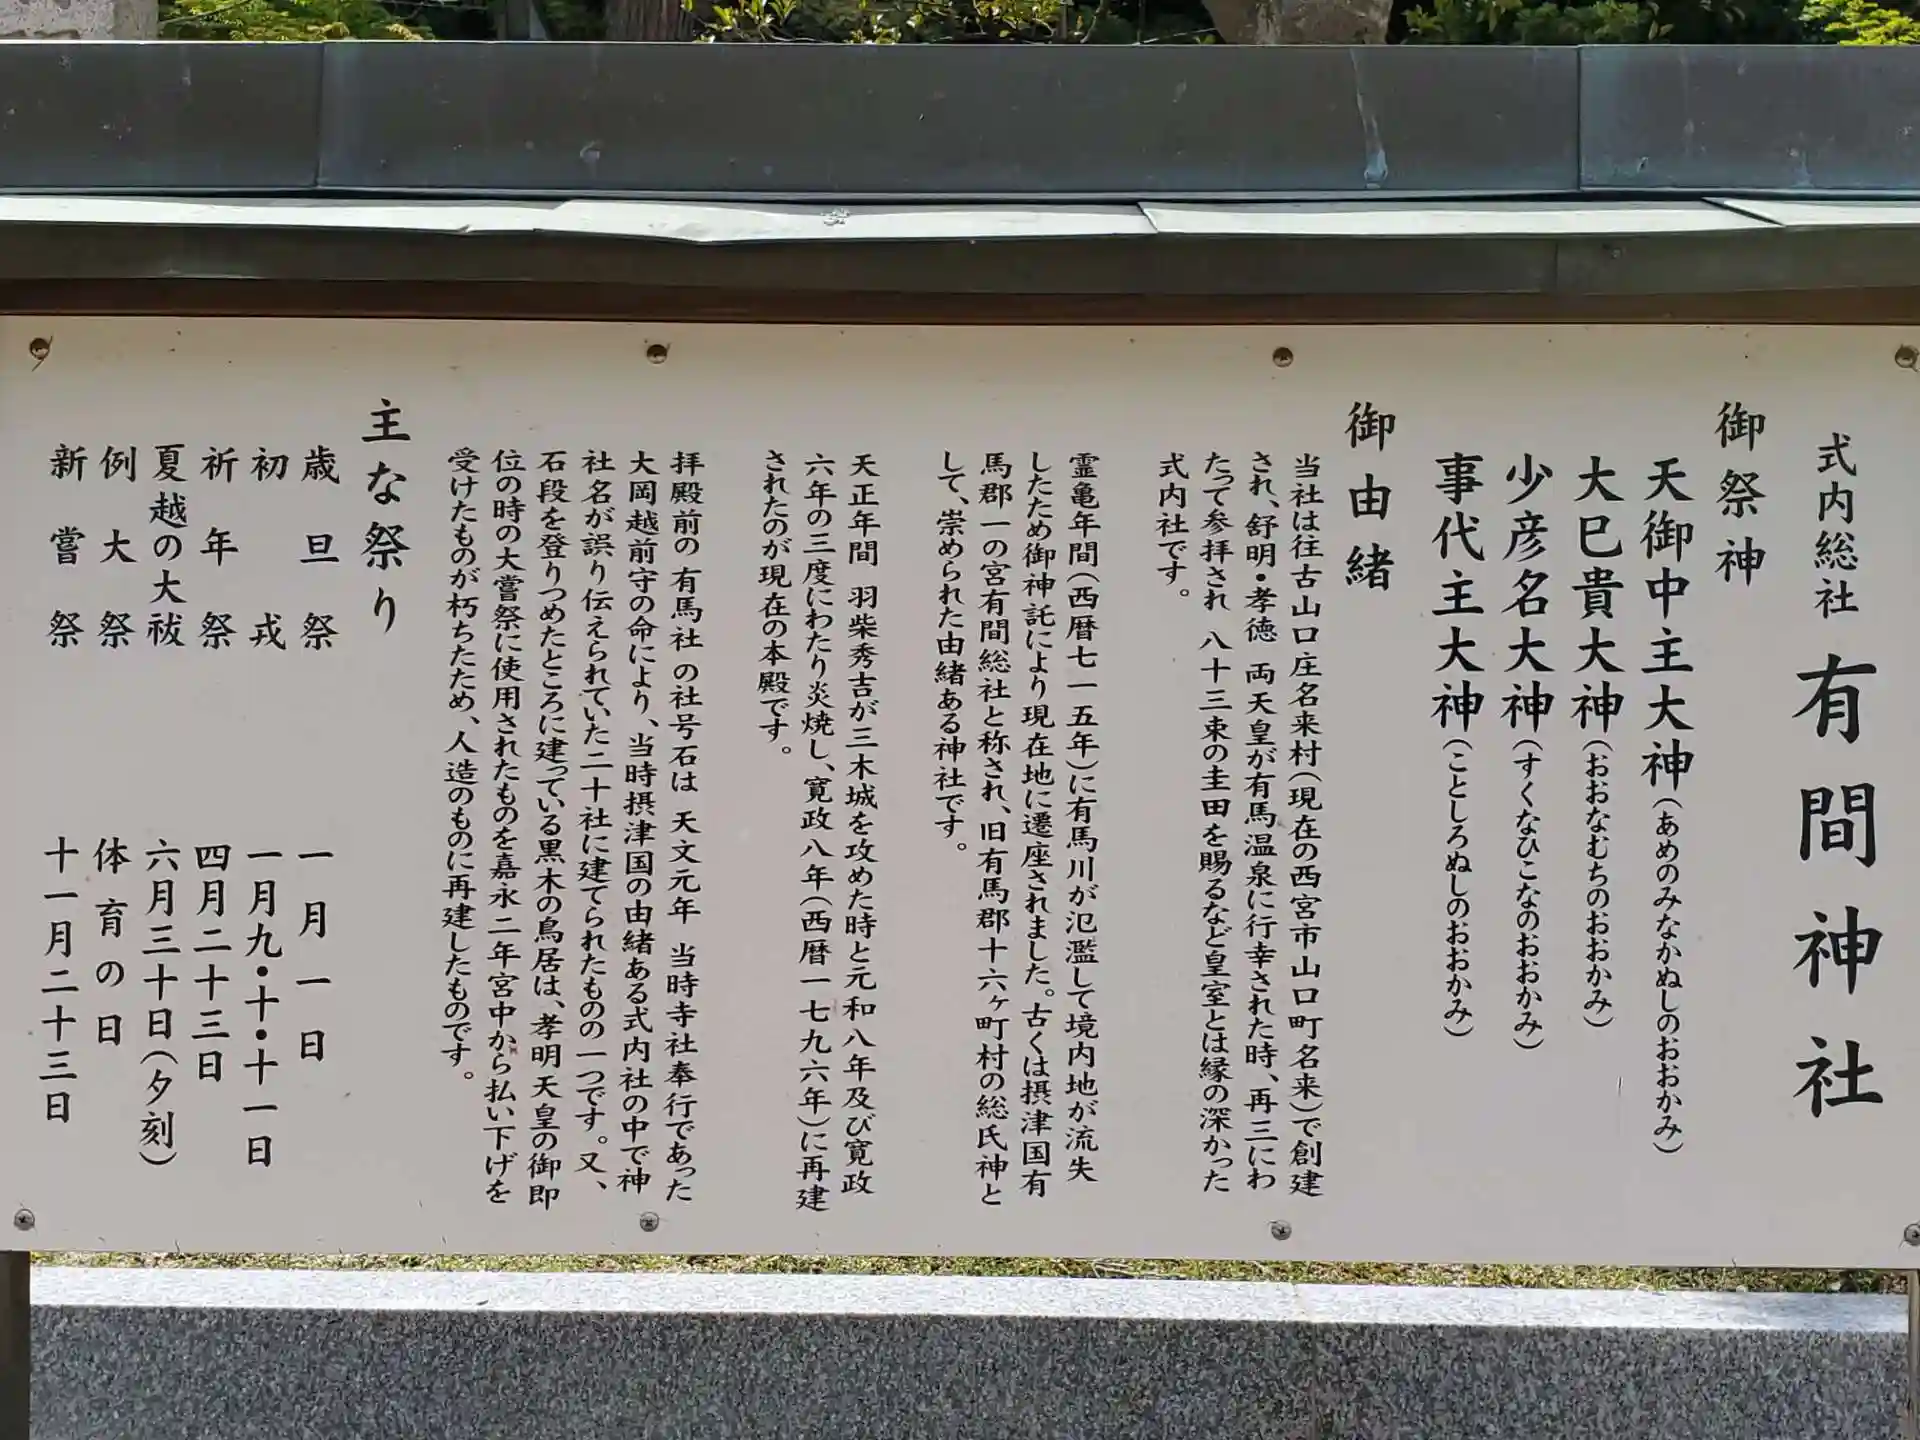 式内総社 有間神社
御祭神
天御中主大神(あめのみなかぬしのおおかみ)
大巳貴大神(おおなむちのおおかみ)
少彦名大神(すくなひこなのおおかみ)
事代主大神(ことしろぬしのおおかみ)
御由緒
当社は往古山口庄名来村(現在の西宮市山口町名来)で創建
され、舒明・孝徳 両天皇が有馬温泉に行幸された時、再三にわ
たって参拝され 八十三束の圭田を賜るなど皇室とは縁の深かった
式内社です。
霊亀年間(西暦七一五年)に有馬川が氾濫して境内地が流失
したため御神託により現在地に遷座されました。古くは摂津国有
馬郡一の宮有間総社と称され、旧有馬郡十六ヶ町村の総氏神と
して、崇められた由緒ある神社です。
天正年間 羽柴秀吉が三木城を攻めた時と元和八年及び寛政
六年の三度にわたり炎焼し、寛政八年(西暦一七九六年)に再建
されたのが現在の本殿です。
拝殿前の 有馬社 の社号石は 天文元年 当時寺社奉行であった
大岡越前守の命により、当時摂津国の由緒ある式内社の中で神
社名が誤り伝えられていた二十社に建てられたものの一つです。又、
石段を登りつめたところに建っている黒木の鳥居は、孝明天皇の御即
位の時の大嘗祭に使用されたものを嘉永二年宮中から払い下げを
受けたものが朽ちたため、人造のものに再建したものです。
主な祭り
歳旦祭 一月一日
初戎 一月九・十・十一日
祈年祭 四月二十三日
夏越の大祓 六月三十日(夕刻)
例大祭 体育の日
新嘗祭 十一月二十三日